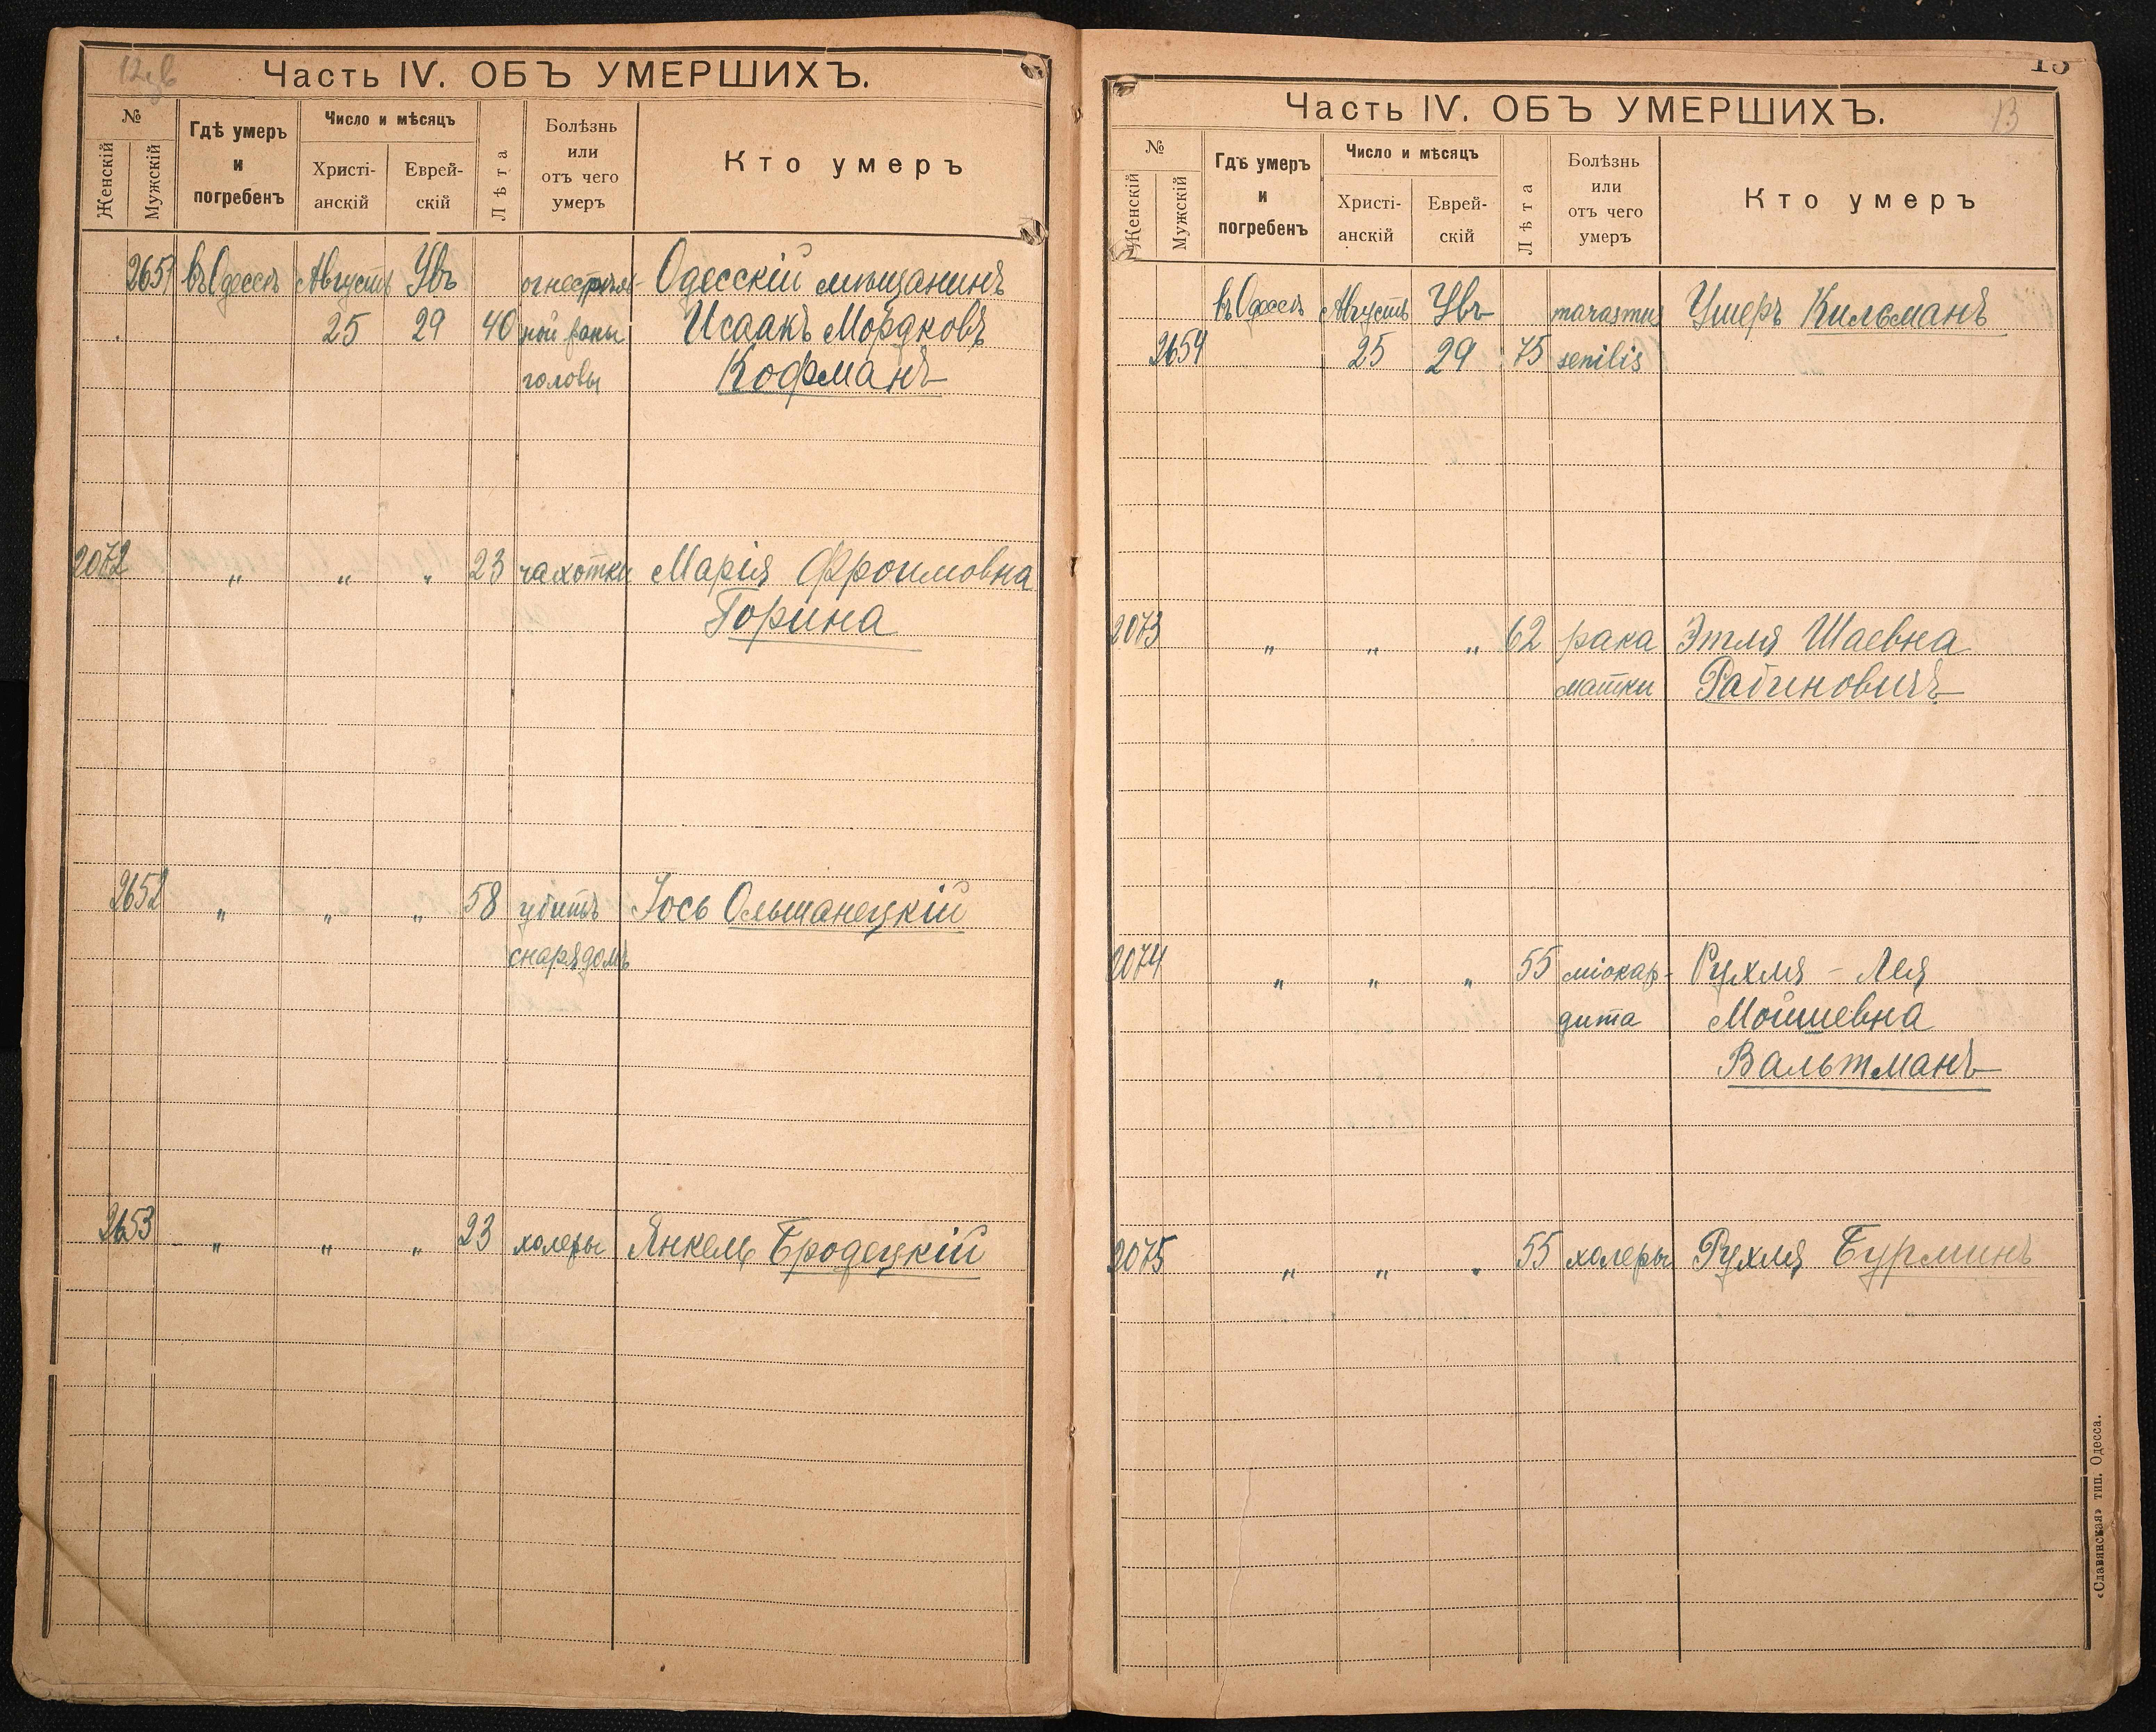 12об
Часть IV. ОБЪ УМЕРШИХЪ.
№
Женскій
Мужскій
Гдѣ умеръ
и
погребенъ
Число и мѣсяцъ
Христі-
анскій
Еврей-
скій
Лѣта
Болѣзнь
или
отъ чего
умеръ
Кто умеръ
2651 въ Одессѣ Августъ Увъ огнестрѣль- Одесскій мѣщанинъ
25 29 40 ной раны Исаакъ Мордковъ
головы Кофманъ
2072 " " " 23 чахотки Марія Фроимовна
Горина
2652 " " " 58 убитъ Іось Ольшанецкій
снарядомъ
2653 " " " 23 холеры Янкель Бродецкій
13
Часть IV. ОБЪ УМЕРШИХЪ.
13
№
Женскій
Мужскій
Гдѣ умеръ
и
погребенъ
Число и мѣсяцъ
Христі-
анскій
Еврей-
скій
Лѣта
Болѣзнь
или
отъ чего
умеръ
Кто умеръ
въ Одессѣ Августъ Увъ marasmus Ушеръ Кильманъ
2654 25 29 75 senilis
2073 " " " 62 рака Этля Шаевна
матки Рабиновичъ
2074 " " " 55 міокар- Рухля - Лея
дита Мойшевна
Вальтманъ
2075 " " " 55 холеры Рухля Бурминъ
«Славянская» тип. Одесса.